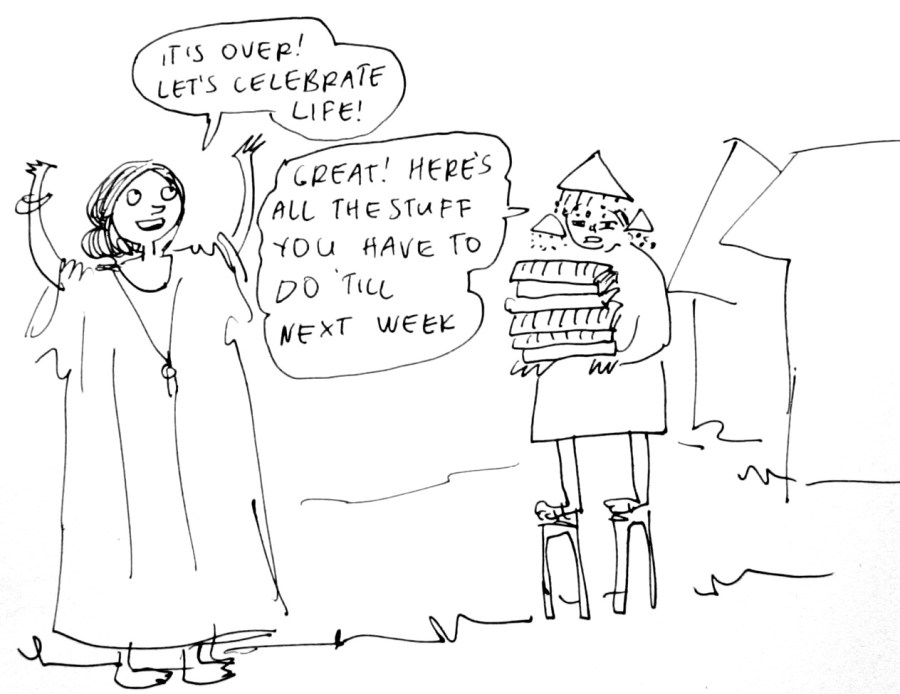 IT IS OVER!
LET'S CELEBRATE
LIFE!
GREAT! HERE'S
ALL THE STUFF
YOU HAVE TO
DO 'TILL
NEXT WEEK